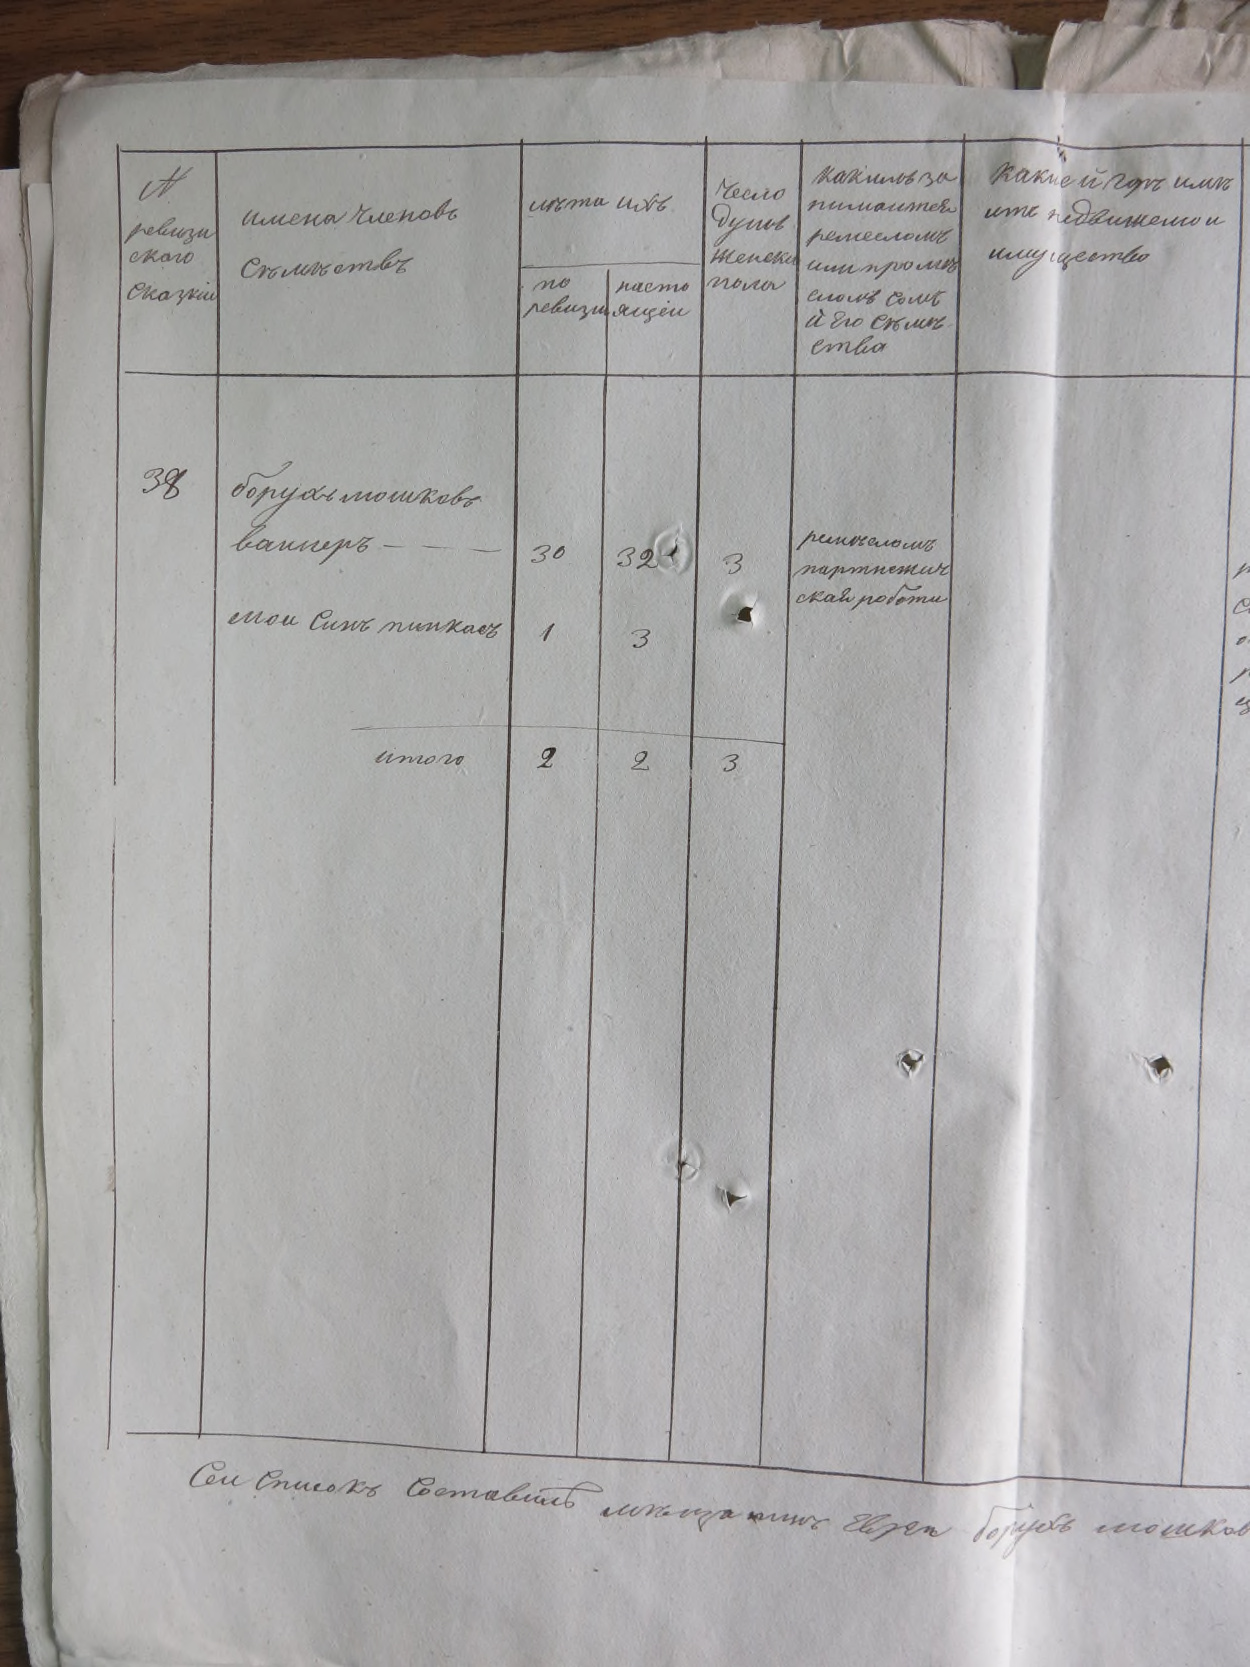 №
ревизи
ского
сказкіи
имена членовъ
съмъствъ
лѣта ихъ
по
ревизии
насто
ящеи
Число
Душъ
женска
пола
какимъ за
нимаитея
ремесломъ
или промы
сломъ самъ
й его съмѣ
ства
какие й где имѣ
итъ недвижемои
имущество
38
борухъ мошковъ
ваннеръ
30
32
3
ремесломъ
партнежич
ская роботи
мои Синъ пинкасъ
1
3
итого
2
2
3
Сеи Списокъ Составилъ мѣщанинъ Евреи борухъ мошков